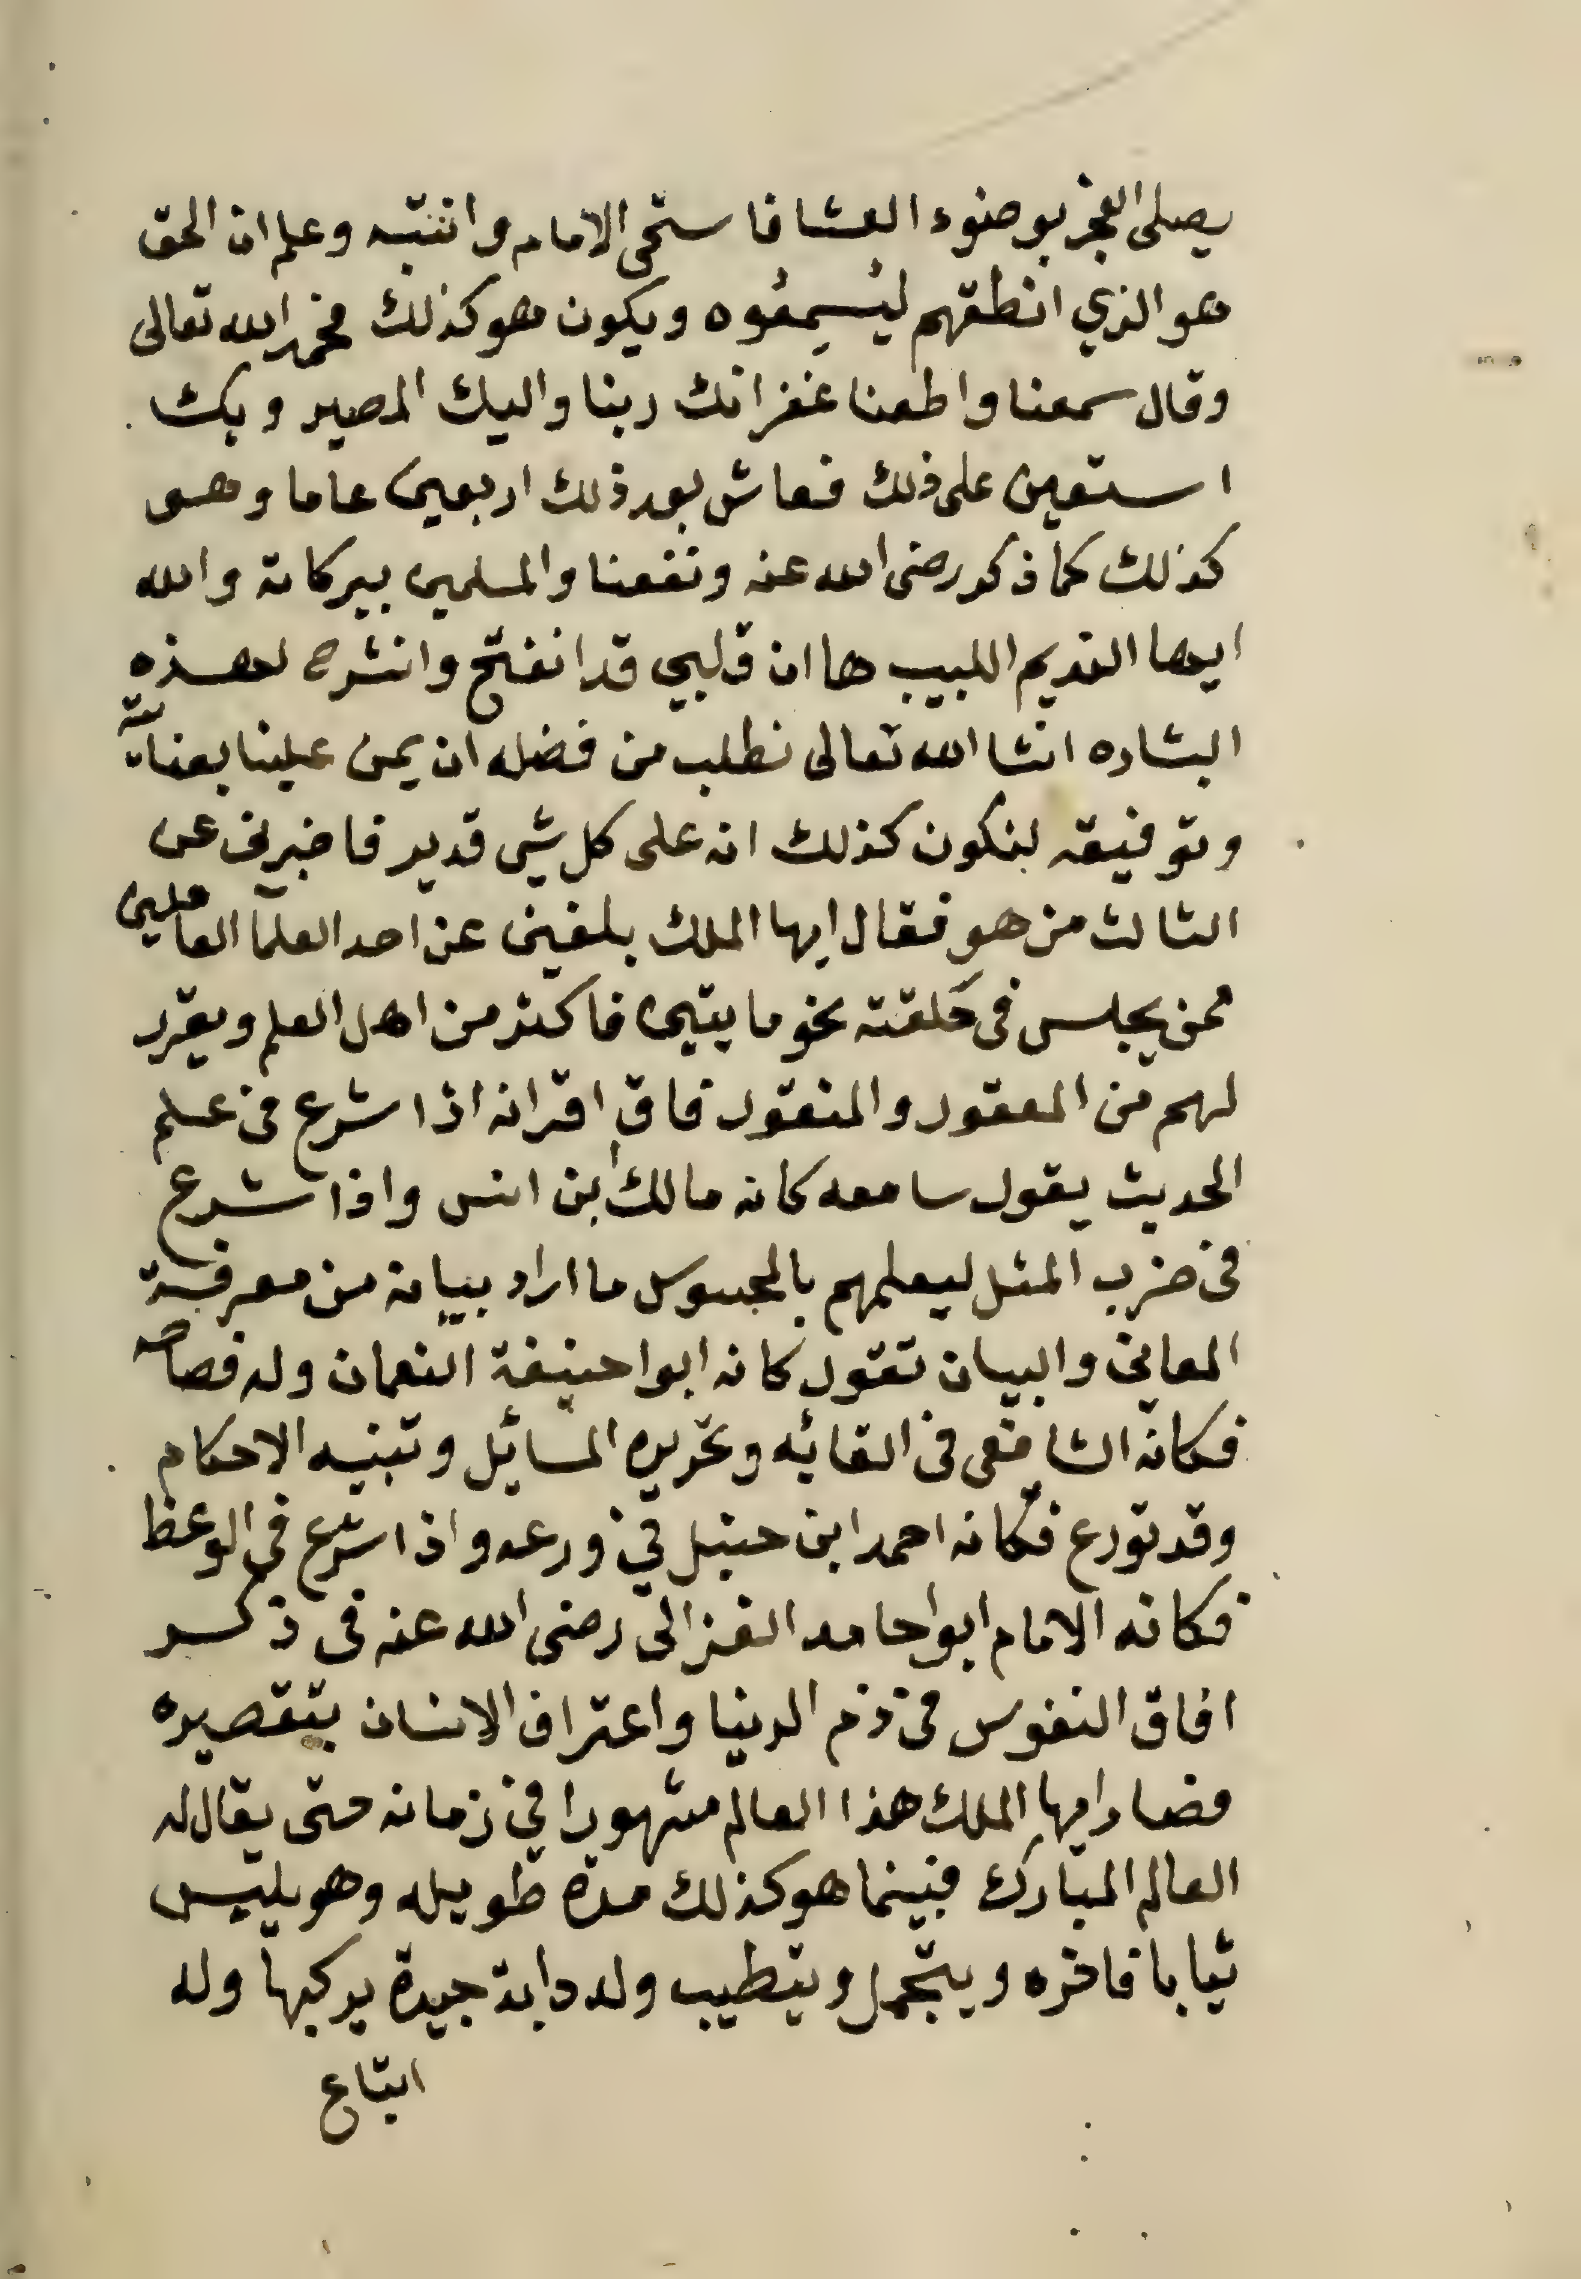 يصلى الفجر بوضوء العشا فاستحى الامام وانتبه وعلم ان الحق
هو الذي انطقهم ليُسمعُوه ويكون هو كذلك فحمد الله تعالى
وقال سمعنا واطعنا غفرانك ربنا واليك المصير وبك
استعين على ذلك فعاش بعد ذلك اربعين عاما وهو
كذلك كما ذكر رضى الله عنه ونفعنا والمسلمين ببركاته والله
ايها النديم اللبيب ها ان قلبي قد انفتح وانشرح لهذه
البشاره انشا الله تعالى نطلب من فضله ان يمن علينا بعنايته
وتوفيقه لنكون كذلك انه على كل شي قدير فاخبرنى عن
الثالث من هو فقال ايها الملك بلغنى عن احد العلمآ العاملين
ممن يجلس فى حَلقته نحو مايتين فاكثر من اهل العلم ويقرر
لهم من المعقول والمنقول فاق اقرانه اذا شرع فى علم
الحديث يقول سامعه كانه مالك ابن انس واذا شرع
فى ضرب المثل ليعلمهم بالمحسوس ما اراد بيانه من معرفة
المعانى والبيان تقول كانه ابوا حنيفة النعمان وله فصاحه
فكانه الشافعى فى القائه وتحريره المسائيل وتبنيه الاحكام
وقد تورع فكانه احمد ابن حنبل في ورعه واذا شرع في الوعظ
فكانه الامام ابوا حامد الغزالى رضى الله عنه فى ذكر
افاق النفوس فى ذم الدنيا واعتراف الانسان بتقصيره
فصار ايها الملك هذا العالم مشهورا في زمانه حتى يقال له
العالم المبارك فبينما هو كذلك مدة طويله وهو يلبس
ثيابا فاخره ويتجمل ويتطيب وله دابة جيدة يركبها وله
اتباع